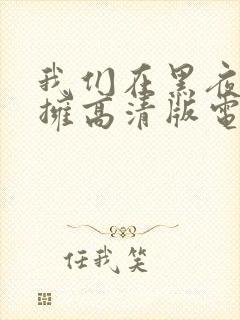 我们在黑夜
擁高清版電
任我笑